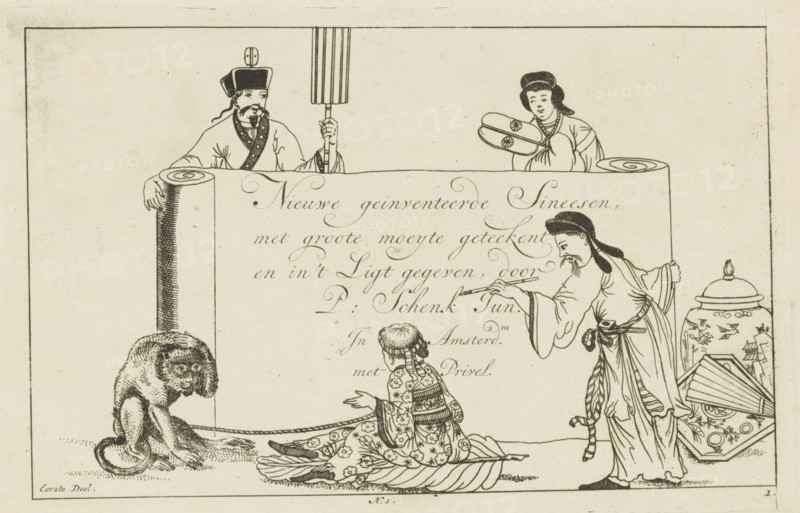 Nieuwe geinventeerde Sineesen,
met groote moeyte geteekent
en in't Ligt gegeven, door
P: Schenk Jun.
In Amsterd.m
met Privel.
Eerste Deel.
N.1.
1.
PHOTO12